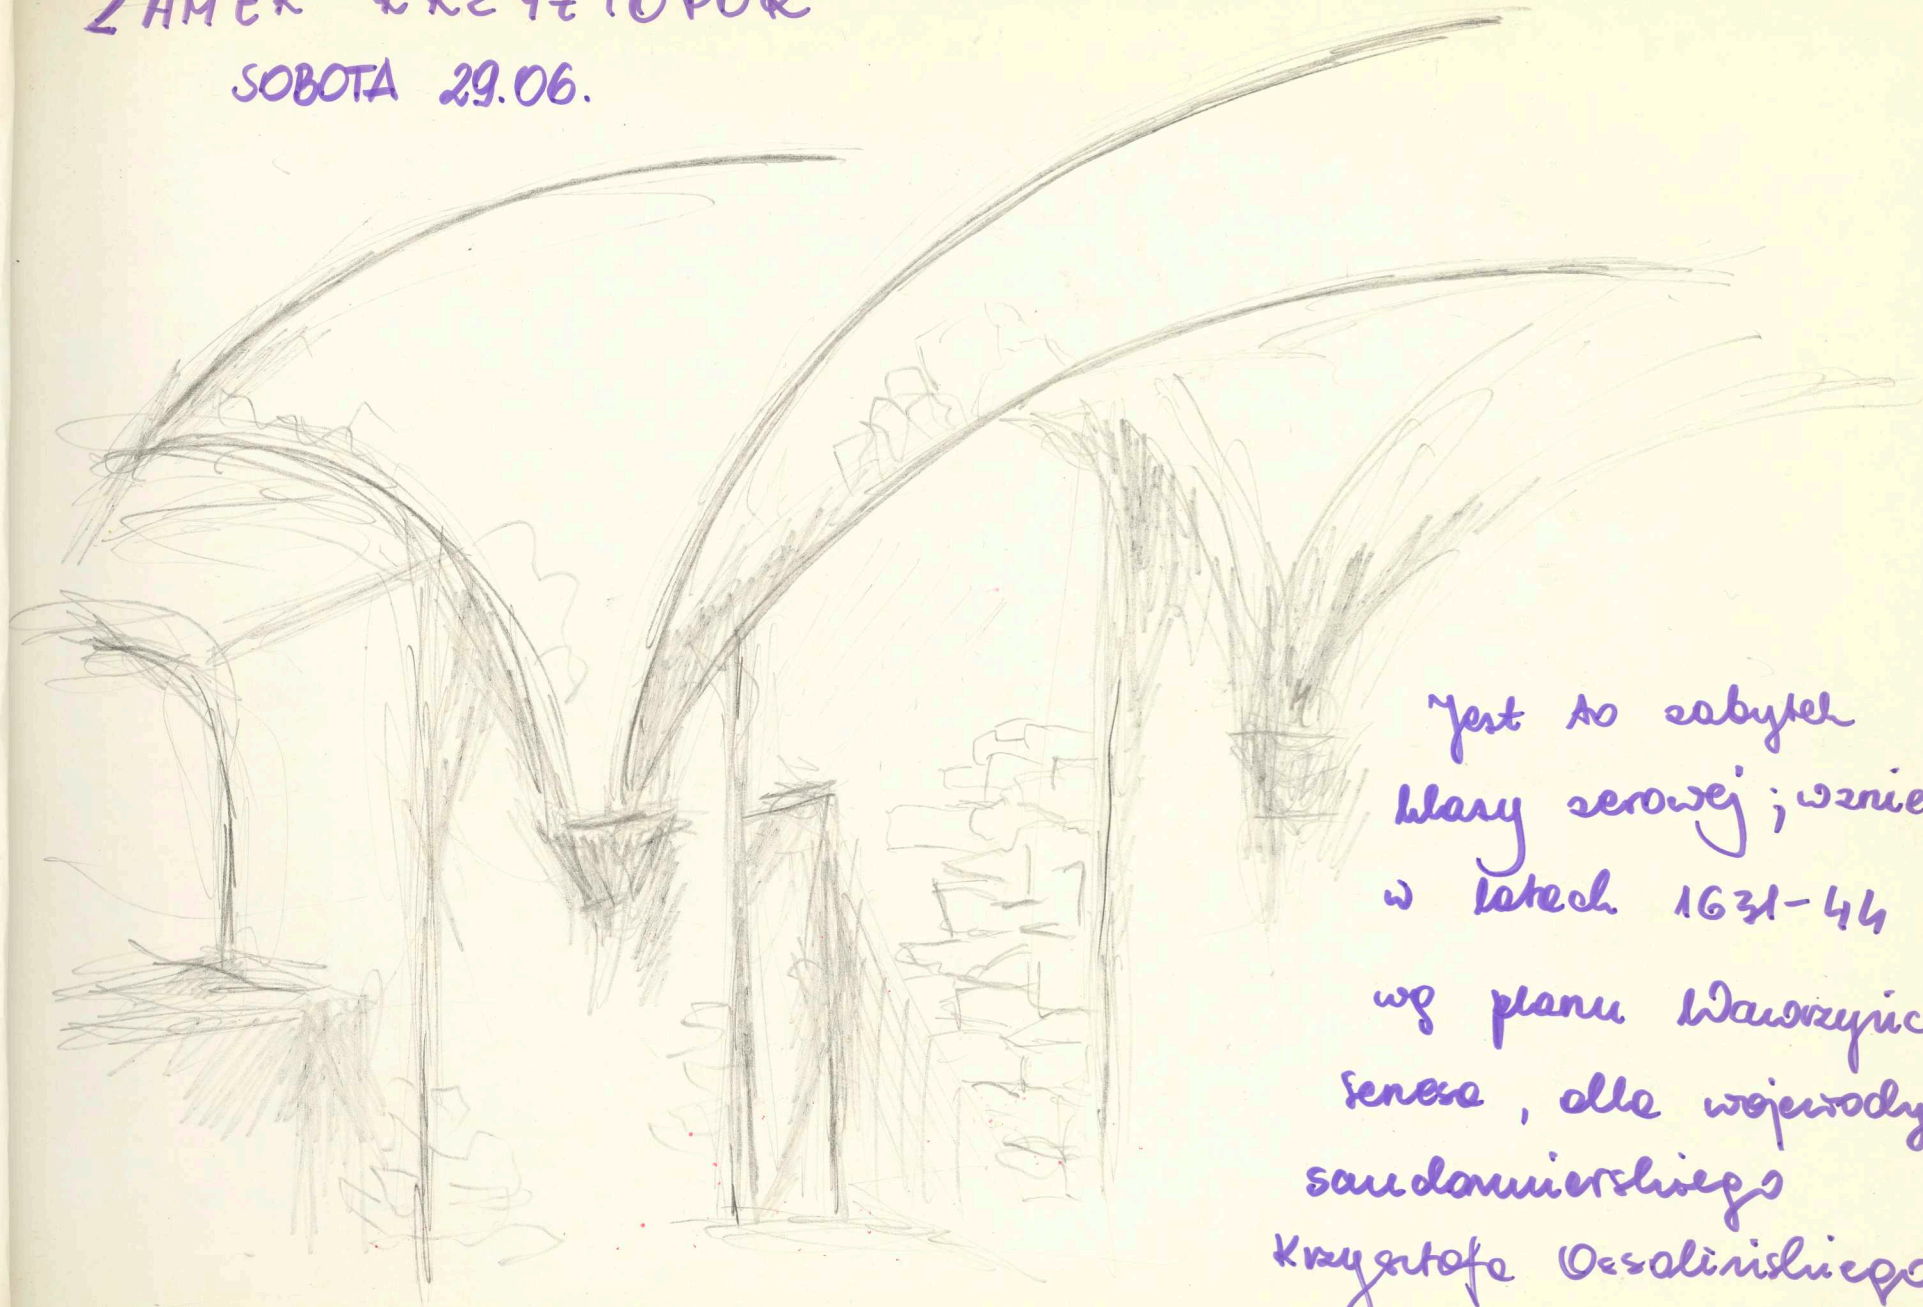 ZAMEK KRZYŻTOPÓR
SOBOTA 29.06.
Jest to zabytek
klasy zerowej; wznie
w latach 1631-44
wg planu Wawrzyńc
Senesa, dla wojewody
sandomierskiego
Krzysztofa Ossolińskiego